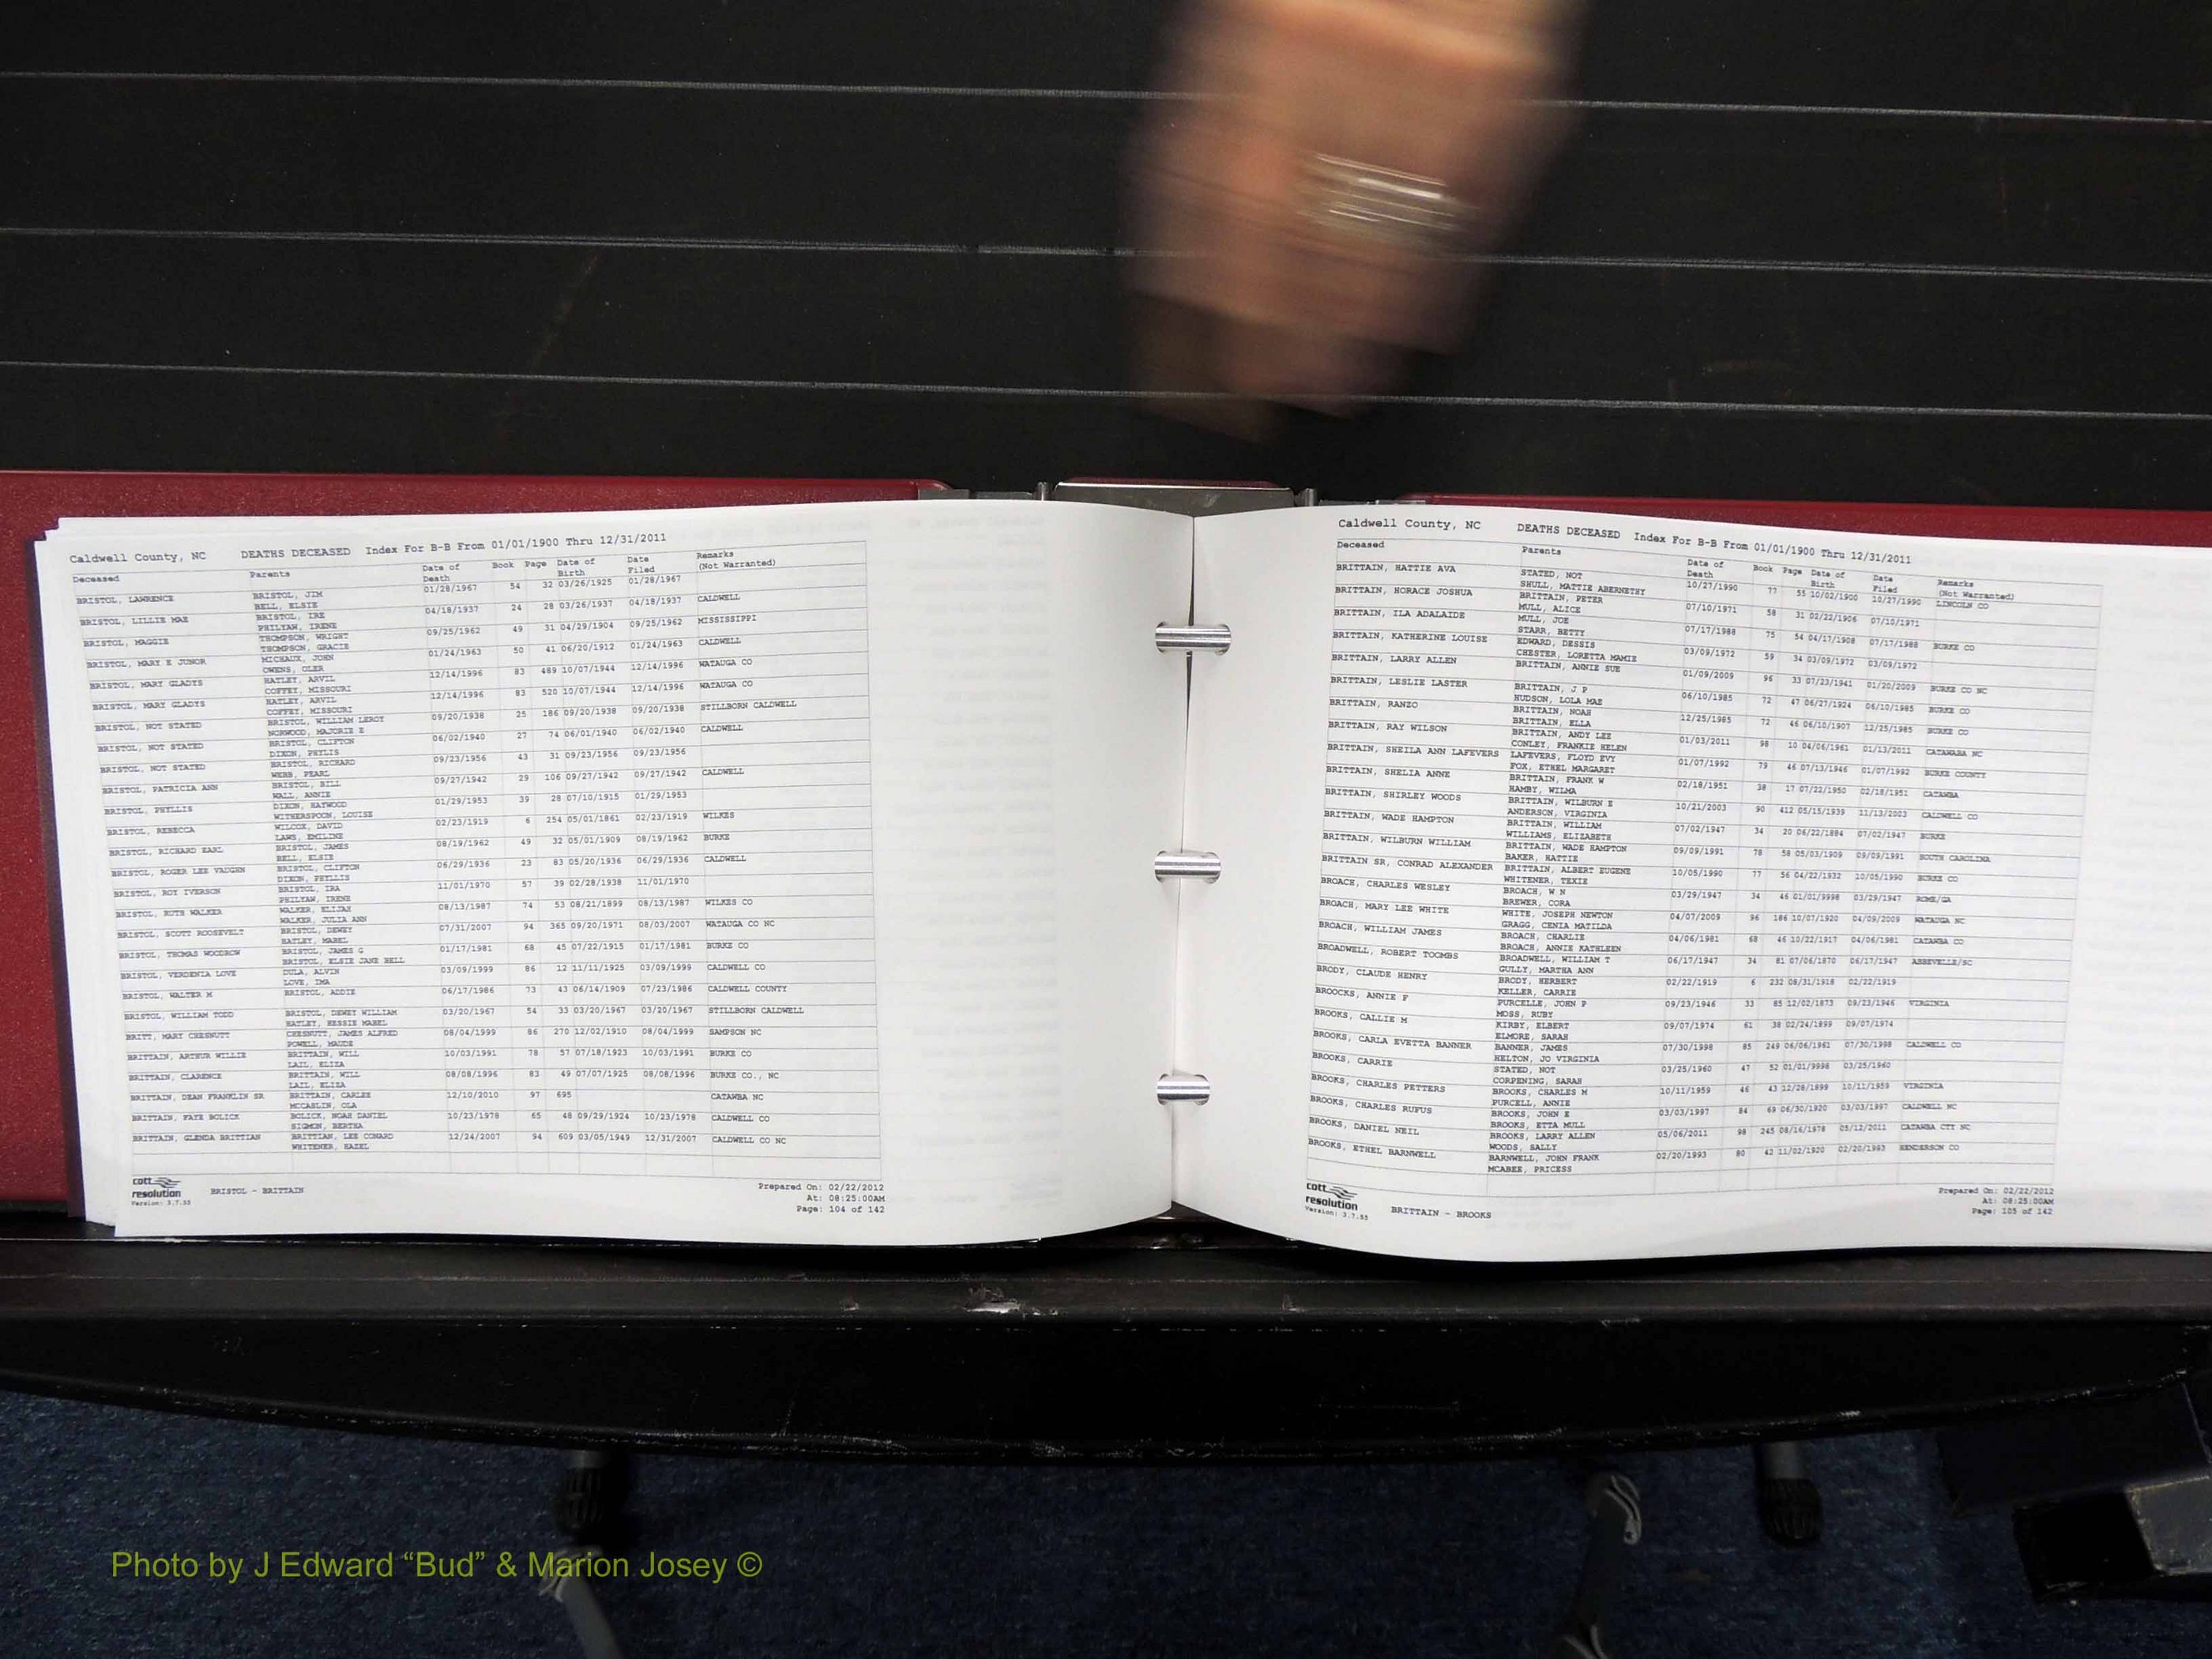 Caldwell County, NC DEATHS DECEASED Index For B-B From 01/01/1900 Thru 12/31/2011
Deceased Parents Date of Death Book Page Date of Birth Date Filed Remarks (Not Warranted)
BRISTOL, LAWRENCE BRISTOL, JIM 01/28/1967 54 32 03/26/1925 01/28/1967
BELL, ELSIE
BRISTOL, LILLIE MAE BRISTOL, IRE 04/18/1937 24 28 03/26/1937 04/18/1937 CALDWELL
PHILYAW, IRENE
BRISTOL, MAGGIE THOMPSON, WRIGHT 09/25/1962 49 31 04/29/1904 09/25/1962 MISSISSIPPI
THOMPSON, GRACIE
BRISTOL, MARY E JUNOR MICHAUX, JOHN 01/24/1963 50 41 06/20/1912 01/24/1963 CALDWELL
OWENS, OLER
BRISTOL, MARY GLADYS HATLEY, ARVIL 12/14/1996 83 489 10/07/1944 12/14/1996 WATAUGA CO
COFFEY, MISSOURI
BRISTOL, MARY GLADYS HATLEY, ARVIL 12/14/1996 83 520 10/07/1944 12/14/1996 WATAUGA CO
COFFEY, MISSOURI
BRISTOL, NOT STATED BRISTOL, WILLIAM LEROY 09/20/1938 25 186 09/20/1938 09/20/1938 STILLBORN CALDWELL
NORWOOD, MAJORIE E
BRISTOL, NOT STATED BRISTOL, CLIFTON 06/02/1940 27 74 06/01/1940 06/02/1940 CALDWELL
DIXON, PHYLIS
BRISTOL, NOT STATED BRISTOL, RICHARD 09/23/1956 43 31 09/23/1956 09/23/1956
WEBB, PEARL
BRISTOL, PATRICIA ANN BRISTOL, BILL 09/27/1942 29 106 09/27/1942 09/27/1942 CALDWELL
WALL, ANNIE
BRISTOL, PHYLLIS DIXON, HAYWOOD 01/29/1953 39 28 07/10/1915 01/29/1953
WITHERSPOON, LOUISE
BRISTOL, REBECCA WILCOX, DAVID 02/23/1919 6 254 05/01/1861 02/23/1919 WILKES
LAWS, EMILINE
BRISTOL, RICHARD EARL BRISTOL, JAMES 08/19/1962 49 32 05/01/1909 08/19/1962 BURKE
BELL, ELSIE
BRISTOL, ROGER LEE VAUGHN BRISTOL, CLIFTON 06/29/1936 23 83 05/20/1936 06/29/1936 CALDWELL
DIXON, PHYLLIS
BRISTOL, ROY IVERSON BRISTOL, IRA 11/01/1970 57 39 02/28/1938 11/01/1970
PHILYAW, IRENE
BRISTOL, RUTH WALKER WALKER, ELIJAH 08/13/1987 74 53 08/21/1899 08/13/1987 WILKES CO
WALKER, JULIA ANN
BRISTOL, SCOTT ROOSEVELT BRISTOL, DEWEY 07/31/2007 94 365 09/20/1971 08/03/2007 WATAUGA CO NC
HATLEY, MABEL
BRISTOL, THOMAS WOODROW BRISTOL, JAMES G 01/17/1981 68 45 07/22/1915 01/17/1981 BURKE CO
BRISTOL, ELSIE JANE BELL
BRISTOL, VERDENIA LOVE DULA, ALVIN 03/09/1999 86 12 11/11/1925 03/09/1999 CALDWELL CO
LOVE, IMA
BRISTOL, WALTER M BRISTOL, ADDIE 06/17/1986 73 43 06/14/1909 07/23/1986 CALDWELL COUNTY
BRISTOL, WILLIAM TODD BRISTOL, DEWEY WILLIAM 03/20/1967 54 33 03/20/1967 03/20/1967 STILLBORN CALDWELL
HATLEY, HESSIE MABEL
BRITT, MARY CHESNUTT CHESNUTT, JAMES ALFRED 08/04/1999 86 270 12/02/1910 08/04/1999 SAMPSON NC
POWELL, MAUDE
BRITTAIN, ARTHUR WILLIE BRITTAIN, WILL 10/03/1991 78 57 07/18/1923 10/03/1991 BURKE CO
LAIL, ELIZA
BRITTAIN, CLARENCE BRITTAIN, WILL 08/08/1996 83 49 07/07/1925 08/08/1996 BURKE CO., NC
LAIL, ELIZA
BRITTAIN, DEAN FRANKLIN SR BRITTAIN, CARLEE 12/10/2010 97 695 CATAWBA NC
MCCASLIN, OLA
BRITTAIN, FAYE BOLICK BOLICK, NOAH DANIEL 10/23/1978 65 48 09/29/1924 10/23/1978 CALDWELL CO
SIGMON, BERTHA
BRITTAIN, GLENDA BRITTIAN BRITTIAN, LEE CONARD 12/24/2007 94 609 03/05/1949 12/31/2007 CALDWELL CO NC
WHITENER, HAZEL
cott
resolution
Version: 3.7.55
BRISTOL - BRITTAIN
Prepared On: 02/22/2012
At: 08:25:00AM
Page: 104 of 142
Caldwell County, NC DEATHS DECEASED Index For B-B From 01/01/1900 Thru 12/31/2011
Deceased Parents Date of Death Book Page Date of Birth Date Filed Remarks (Not Warranted)
BRITTAIN, HATTIE AVA STATED, NOT 10/27/1990 77 55 10/02/1900 10/27/1990 LINCOLN CO
SHULL, MATTIE ABERNETHY
BRITTAIN, HORACE JOSHUA BRITTAIN, PETER 07/10/1971 58 31 02/22/1906 07/10/1971
MULL, ALICE
BRITTAIN, ILA ADALAIDE MULL, JOE 07/17/1988 75 54 04/17/1908 07/17/1988 BURKE CO
STARR, BETTY
BRITTAIN, KATHERINE LOUISE EDWARD, DESSIS 03/09/1972 59 34 03/09/1972 03/09/1972
CHESTER, LORETTA MAMIE
BRITTAIN, LARRY ALLEN BRITTAIN, ANNIE SUE 01/09/2009 96 33 07/23/1941 01/20/2009 BURKE CO NC
BRITTAIN, LESLIE LASTER BRITTAIN, J P 06/10/1985 72 47 06/27/1924 06/10/1985 BURKE CO
HUDSON, LOLA MAE
BRITTAIN, RANZO BRITTAIN, NOAH 12/25/1985 72 46 06/10/1907 12/25/1985 BURKE CO
BRITTAIN, ELLA
BRITTAIN, RAY WILSON BRITTAIN, ANDY LEE 01/03/2011 98 10 04/06/1961 01/13/2011 CATAWABA NC
CONLEY, FRANKIE HELEN
BRITTAIN, SHEILA ANN LAFEVERS LAFEVERS, FLOYD EVY 01/07/1992 79 46 07/13/1946 01/07/1992 BURKE COUNTY
FOX, ETHEL MARGARET
BRITTAIN, SHELIA ANNE BRITTAIN, FRANK W 02/18/1951 38 17 07/22/1950 02/18/1951 CATAWBA
HAMBY, WILMA
BRITTAIN, SHIRLEY WOODS BRITTAIN, WILBURN E 10/21/2003 90 412 05/15/1939 11/13/2003 CALDWELL CO
ANDERSON, VIRGINIA
BRITTAIN, WADE HAMPTON BRITTAIN, WILLIAM 07/02/1947 34 20 06/22/1884 07/02/1947 BURKE
WILLIAMS, ELIZABETH
BRITTAIN, WILBURN WILLIAM BRITTAIN, WADE HAMPTON 09/09/1991 78 58 05/03/1909 09/09/1991 SOUTH CAROLINA
BAKER, HATTIE
BRITTAIN SR, CONRAD ALEXANDER BRITTAIN, ALBERT EUGENE 10/05/1990 77 56 04/22/1932 10/05/1990 BURKE CO
WHITENER, TEXIE
BROACH, CHARLES WESLEY BROACH, W N 03/29/1947 34 46 01/01/9998 03/29/1947 ROME/GA
BREWER, CORA
BROACH, MARY LEE WHITE WHITE, JOSEPH NEWTON 04/07/2009 96 186 10/07/1920 04/09/2009 WATAUGA NC
GRAGG, CENIA MATILDA
BROACH, WILLIAM JAMES BROACH, CHARLIE 04/06/1981 68 46 10/22/1917 04/06/1981 CATAWBA CO
BROACH, ANNIE KATHLEEN
BROADWELL, ROBERT TOOMBS BROADWELL, WILLIAM T 06/17/1947 34 81 07/06/1870 06/17/1947 ABBEVELLE/SC
GULLY, MARTHA ANN
BRODY, CLAUDE HENRY BRODY, HERBERT 02/22/1919 6 232 08/31/1918 02/22/1919
KELLER, CARRIE
BROOCKS, ANNIE F PURCELLE, JOHN P 09/23/1946 33 85 12/02/1873 09/23/1946 VIRGINIA
MOSS, RUBY
BROOKS, CALLIE M KIRBY, ELBERT 09/07/1974 61 38 02/24/1899 09/07/1974
ELMORE, SARAH
BROOKS, CARLA EVETTA BANNER BANNER, JAMES 07/30/1998 85 249 06/06/1961 07/30/1998 CALDWELL CO
HELTON, JO VIRGINIA
BROOKS, CARRIE STATED, NOT 03/25/1960 47 52 01/01/9998 03/25/1960
CORPENING, SARAH
BROOKS, CHARLES PETTERS BROOKS, CHARLES M 10/11/1959 46 43 12/28/1899 10/11/1959 VIRGINIA
PURCELL, ANNIE
BROOKS, CHARLES RUFUS BROOKS, JOHN E 03/03/1997 84 69 06/30/1920 03/03/1997 CALDWELL NC
BROOKS, ETTA MULL
BROOKS, DANIEL NEIL BROOKS, LARRY ALLEN 05/06/2011 98 245 08/16/1978 05/12/2011 CATAWBA CTY NC
WOODS, SALLY
BROOKS, ETHEL BARNWELL BARNWELL, JOHN FRANK 02/20/1993 80 42 11/02/1920 02/20/1993 HENDERSON CO
MCABEE, PRICESS
cott
resolution
Version: 3.7.55
BRITTAIN - BROOKS
Prepared On: 02/22/2012
At: 08:25:00AM
Page: 105 of 142
Photo by J Edward “Bud” & Marion Josey ©